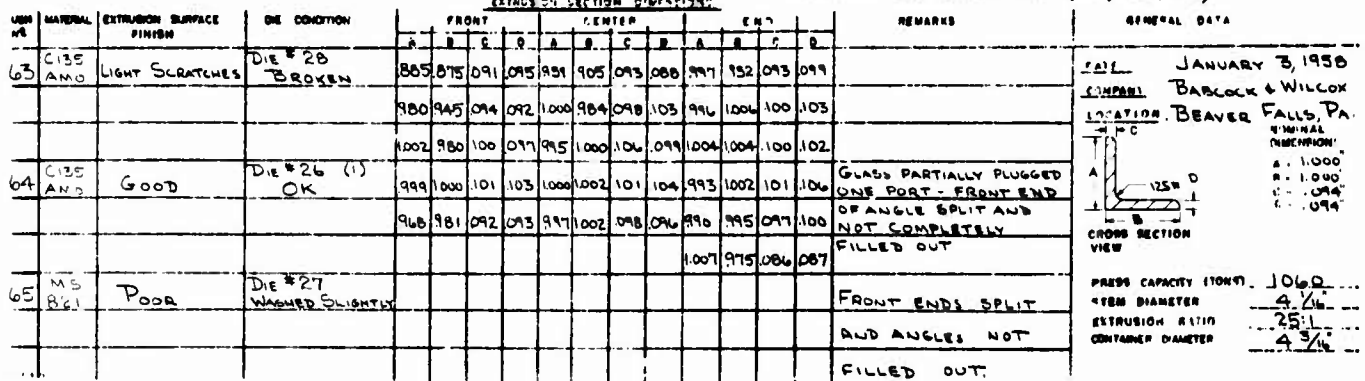 EXTRUSION SECTION DIMENSIONS
MATERIAL EXTRUSION SURFACE FINISH DIE CONDITION FRONT CENTER END REMARKS GENERAL DATA
A B C D A B C D A B C D
63 C135 AMO LIGHT SCRATCHES DIE #28 BROKEN .885 .875 .091 .095 .951 .905 .093 .088 .997 .932 .093 .099
.980 .945 .094 .092 1.000 .984 .098 .103 .996 1.006 .100 .103
1.002 .980 .100 .097 .995 1.000 .106 .099 1.004 1.004 .100 .102
64 C135 AMO GOOD DIE #26 (1) OK .999 1.000 .101 .103 1.000 1.002 .101 .104 .993 1.002 .101 .106 GLASS PARTIALLY PLUGGED
ONE PORT - FRONT END
.968 .981 .092 .093 .997 1.002 .098 .096 .990 .995 .097 .100 OF ANGLE SPLIT AND
NOT COMPLETELY
1.007 .975 .086 .087 FILLED OUT
65 MS 861 POOR DIE #27 WASHED SLIGHTLY FRONT ENDS SPLIT
AND ANGLES NOT
FILLED OUT.
DATE JANUARY 3, 1958
COMPANY BABCOCK & WILCOX
LOCATION BEAVER FALLS, PA.
C
NOMINAL
DIMENSION
A = 1.000"
B = 1.000"
C = .094"
D = .094"
A
.125 R
D
B
CROSS SECTION
VIEW
PRESS CAPACITY (TONS) 1060
STEM DIAMETER 4 1/16"
EXTRUSION RATIO 25:1
CONTAINER DIAMETER 4 3/16"